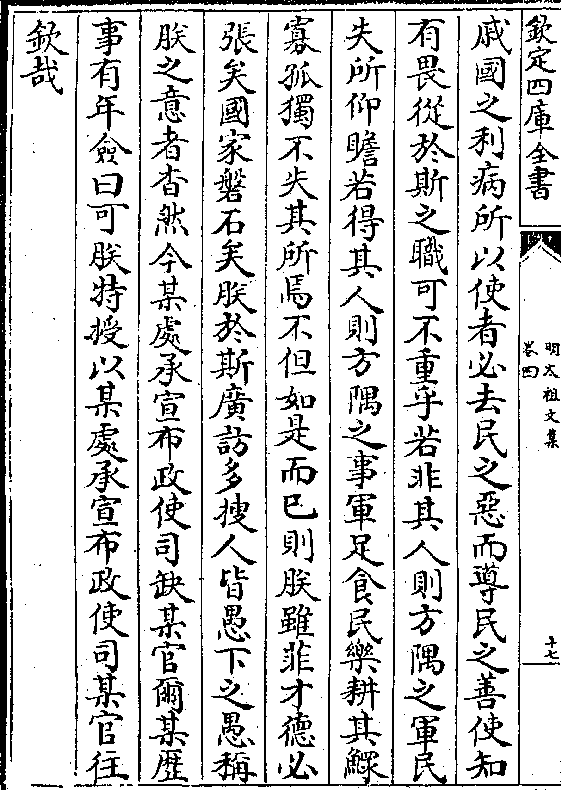 欽定四庫全書
明太祖文集
卷四
十七
戚國之利病所以使者必去民之惡而導民之善使知
有畏從於斯之職可不重乎若非其人則方隅之軍民
失所仰瞻若得其人則方隅之事軍足食民樂耕其鰥
寡孤獨不失其所焉不但如是而已則朕雖菲才德必
張矣國家磐石矣朕於斯廣訪多搜人皆愚下之愚稱
朕之意者杳然今某處承宣布政使司缺某官爾某歷
事有年僉曰可朕特授以某處承宣布政使司某官往
欽哉